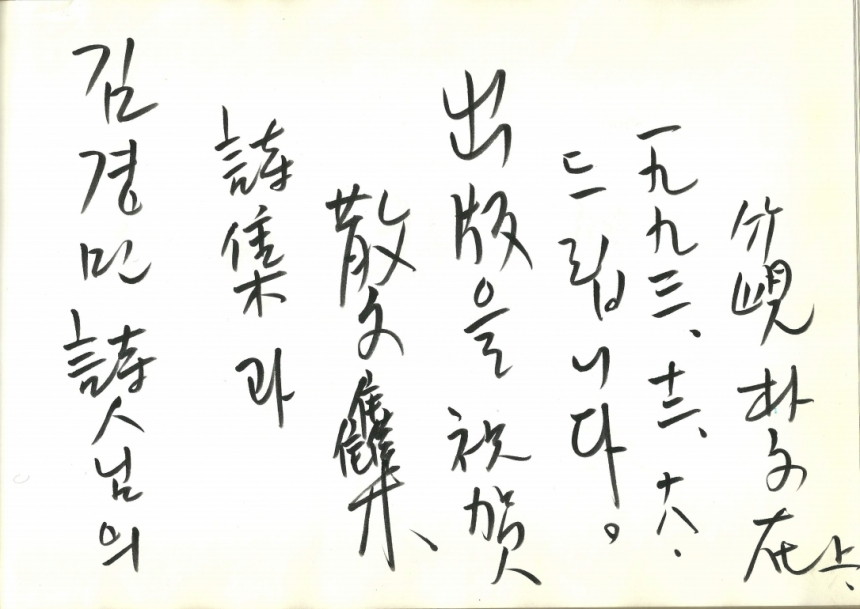 김경민 詩人님의
詩集과
散文集、
出版을 祝賀
드립니다。
一九九三、十二、十八.
竹峴 朴文在 上、